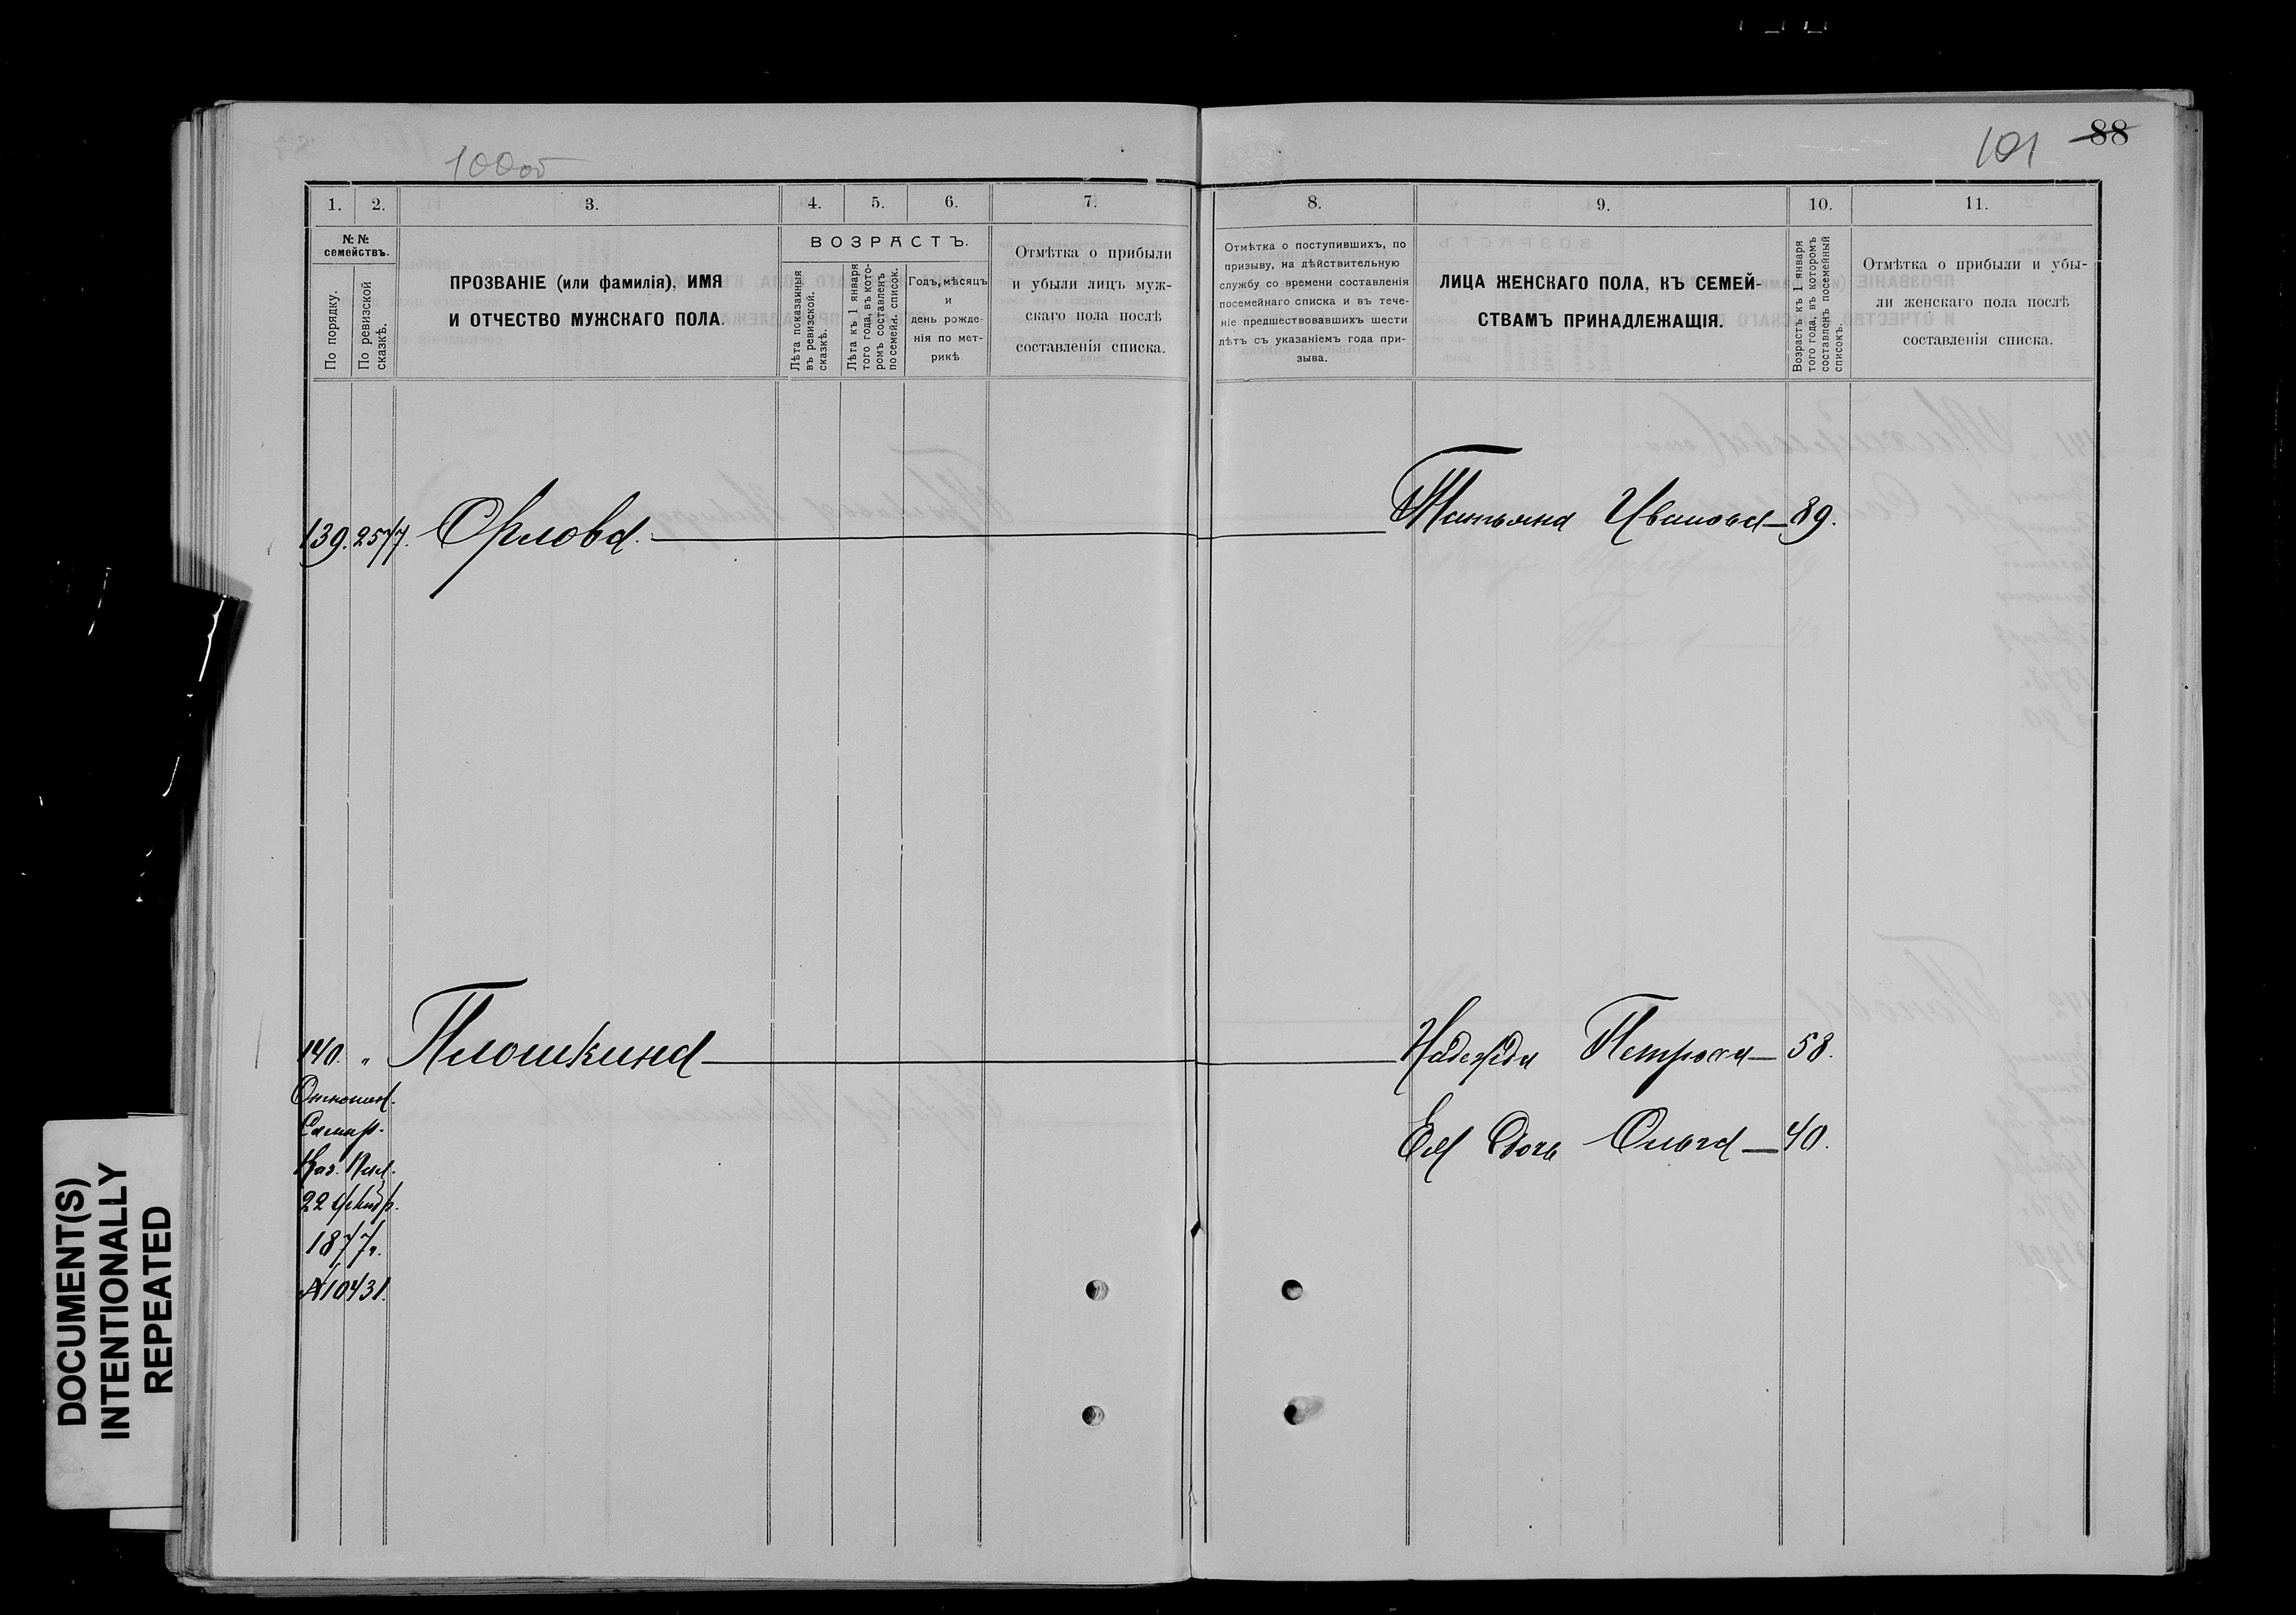 100об
101 88
1. 2. 3. 4. 5. 6. 7. 8. 9. 10. 11.
№ №
семействъ.
По порядку.
По ревизской
сказкѣ.
ПРОЗВАНІЕ (или фамилія), ИМЯ
И ОТЧЕСТВО МУЖСКАГО ПОЛА.
ВОЗРАСТЪ.
Лѣта показанныя
въ ревизской.
сказкѣ.
Лѣта къ 1 января
того года, въ кото-
ромъ составленъ
посемейн. список.
Годъ, мѣсяцъ
и
день рожде-
нія по мет-
рикѣ.
Отмѣтка о прибыли
и убыли лицъ муж-
скаго пола послѣ
составленія списка.
Отмѣтка о поступившихъ, по
призыву, на дѣйствительную
службу со времени составленія
посемейнаго списка и въ тече-
ніе предшествовавшихъ шести
лѣтъ съ указаніемъ года при-
зыва.
ЛИЦА ЖЕНСКАГО ПОЛА, КЪ СЕМЕЙ-
СТВАМЪ ПРИНАДЛЕЖАЩІЯ.
Возрастъ къ 1 января
того года, въ которомъ
составленъ посемейный
списокъ.
Отмѣтка о прибыли и убы-
ли женскаго пола послѣ
составленія списка.
139. 2577. Орлова. Татьяна Иванова — 89.
140. „ Плошкина Надежда Петрова — 58.
Отношен.
Самар.
Каз. Пал.
Ея дочь Ольга — 40.
22
1877г.
№ 10431.
DOCUMENT(S)
INTENTIONALLY
REPEATED